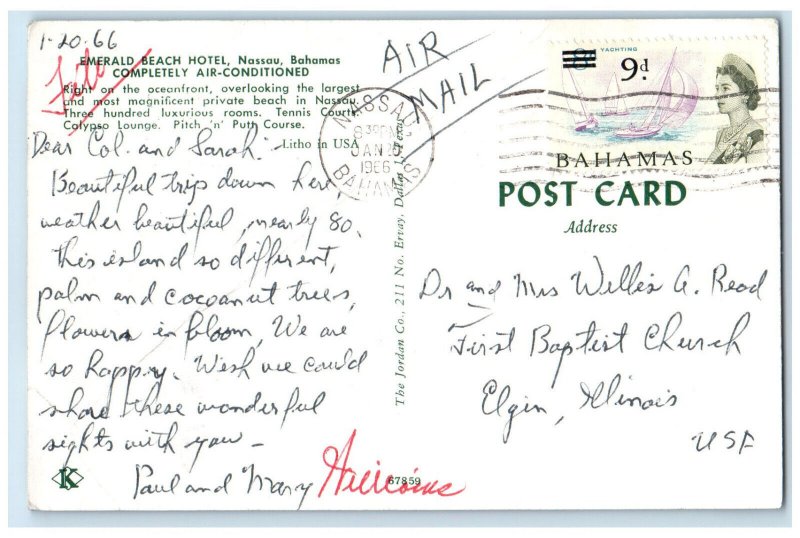 1-20.66
File
EMERALD BEACH HOTEL, Nassau, Bahamas
COMPLETELY AIR-CONDITIONED
Right on the oceanfront, overlooking the largest
and most magnificent private beach in Nassau.
Three hundred luxurious rooms. Tennis Courts,
Calypso Lounge. Pitch 'n' Putt Course.
Litho in USA
Dear Col. and Sarah:
Beautiful trip down here,
weather beautiful, nearly 80.
This island so different,
palm and cocoanut trees,
flowers in bloom, We are
so happy. Wish we could
share these wonderful
sights with you —
Paul and Mary
K
67859
The Jordan Co., 211 No. Ervay, Dallas 1, Texas
AIR
MAIL
NASSAU
JAN 20
1966
BAHAMAS
YACHTING
9d.
BAHAMAS
POST CARD
Address
Dr and Mrs Willis A. Reed
First Baptist Church
Elgin, Illinois
USA